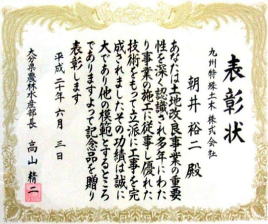 表彰状
九州特殊土木株式会社
朝井裕二殿
あなたは土地改良事業の重要
性を深く認識され多年にわた
り事業の施工に従事し優れた
技術をもって立派に工事を完
成されましたその功績は誠に
大であり他の模範とするところ
でありますよって記念品を贈り
表彰します
平成二十年六月三日
大分県農林水産部長
高山精二